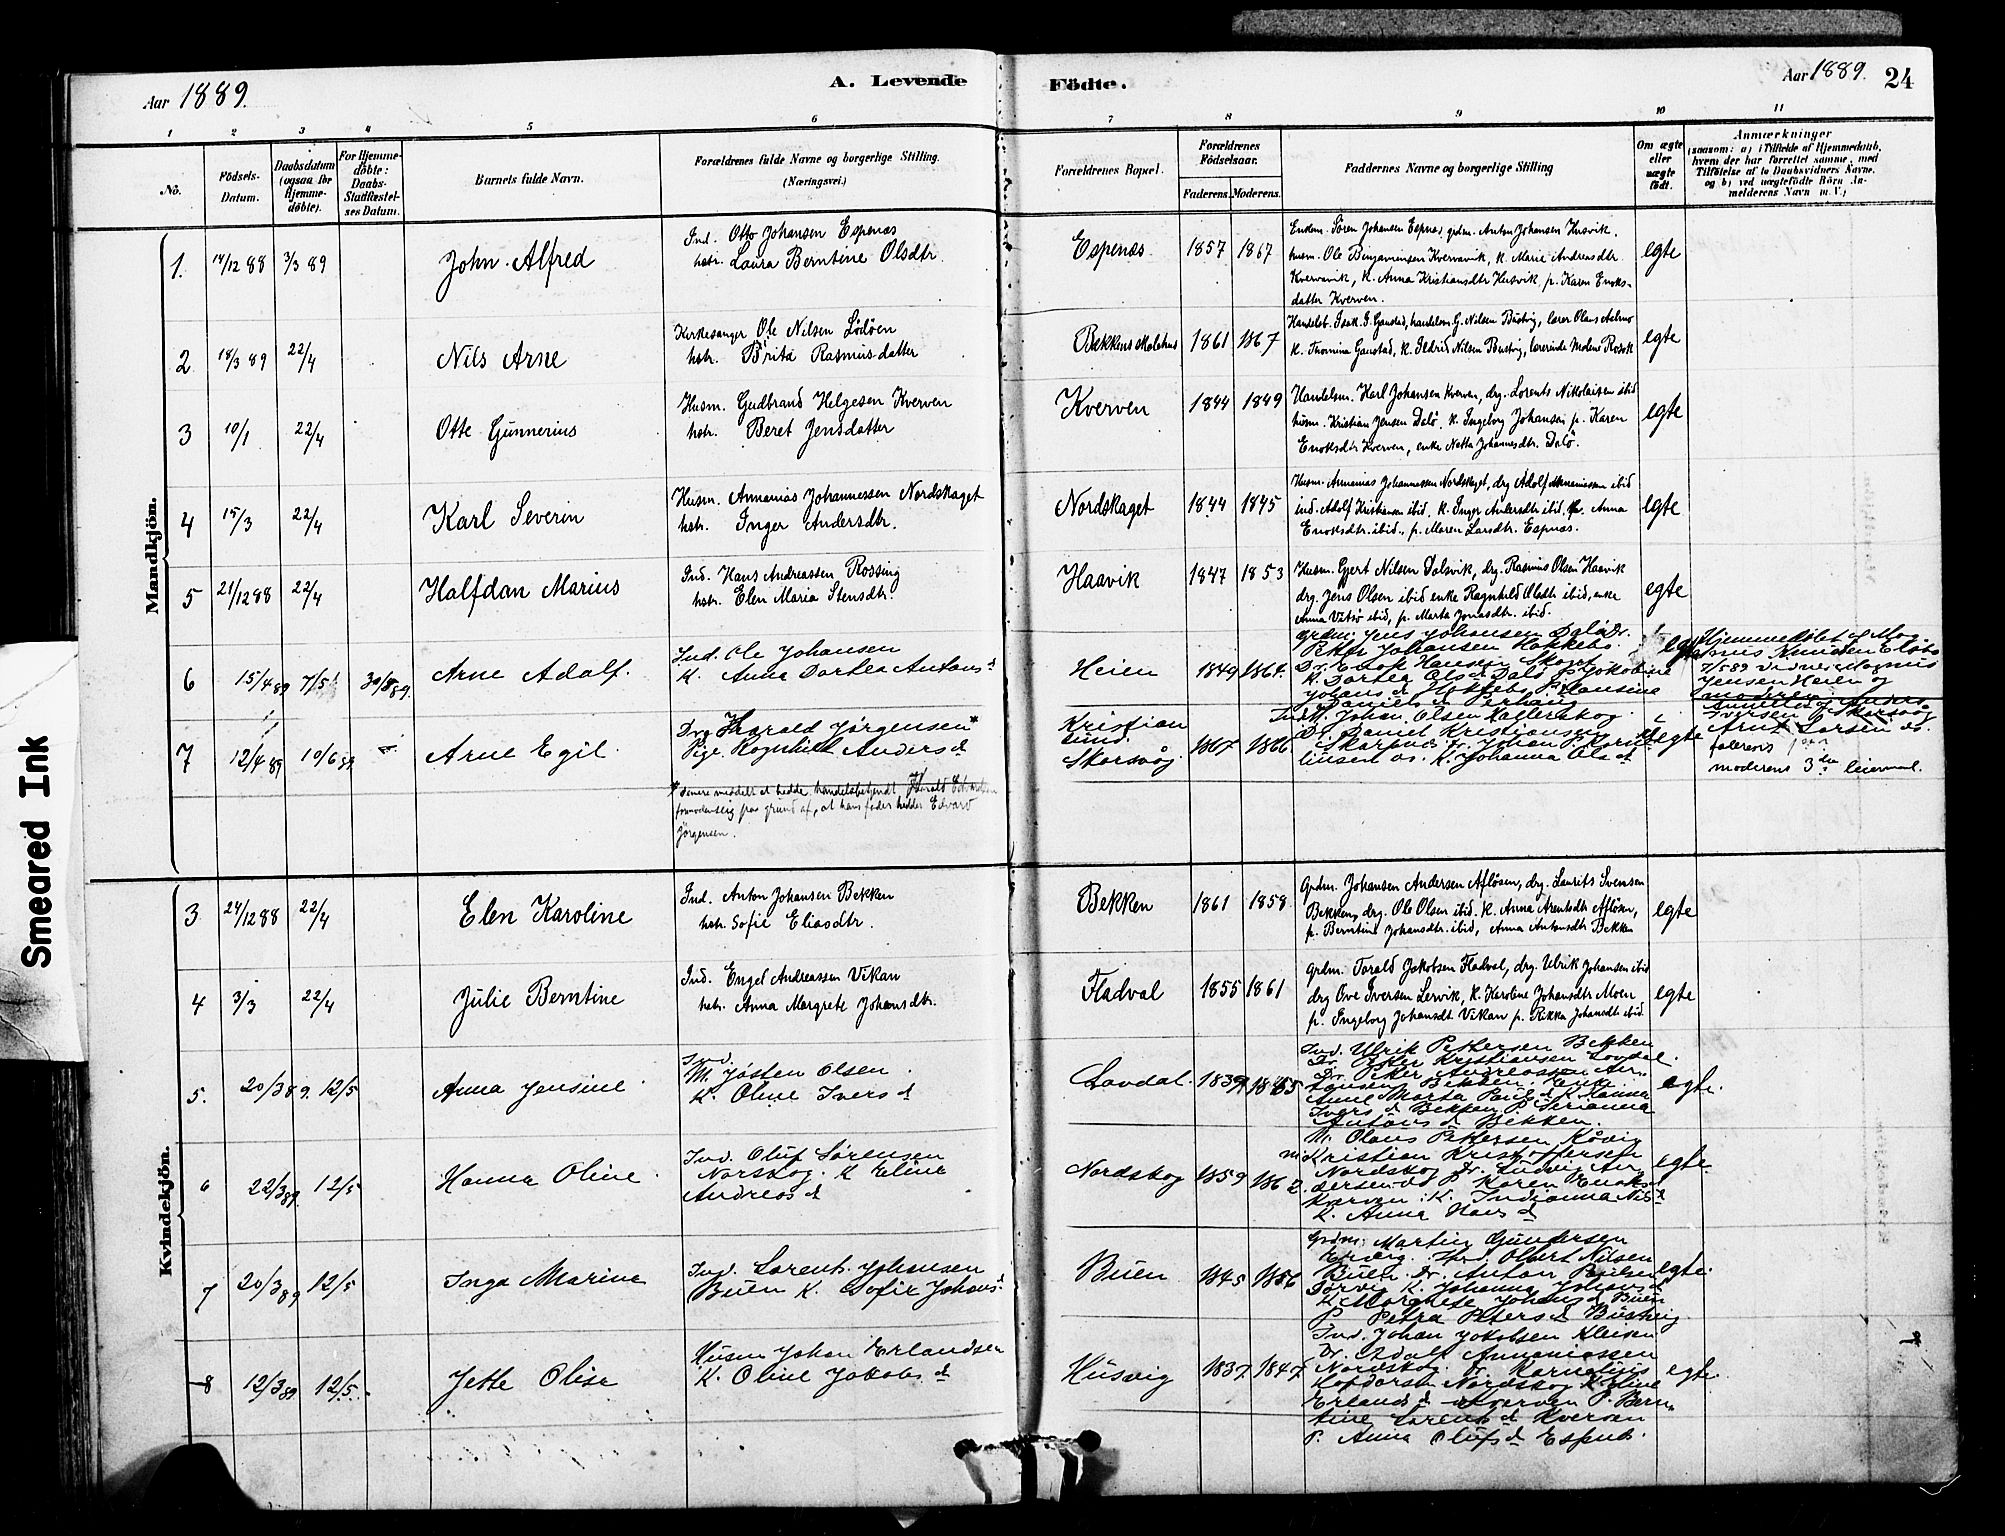 Aar 1889.
A. Levende Födte.
Aar 1889. 24
1 2 3 4 5 6 7 8 9 10 11
No.
Födsels-Datum.
Daabsdatum (ogsaa for Hjemme-döbte).
For Hjemme-döbte: Daabs-Stadfæstel-ses Datum.
Barnets fulde Navn.
Forældrenes fulde Navne og borgerlige Stilling.
(Næringsvei.)
Forældrenes Bopæl.
Forældrenes Födselsaar.
Faderens. Moderens.
Faddernes Navne og borgerlige Stilling
Om ægte eller uægte födt.
Anmærkninger
(saasom: a) i Tilfælde af Hjemmedaab,
hvem der har forrettet samme, med
Tilföielse af to Daabsvidners Navne.
og b) ved uægtefödte Börn An-
melderens Navn m. V.)
Mandkjön.
1. 14/12 88 3/3 89 John Alfred
Ind. Otto Johansen Espenæs
hstr. Laura Berntine Olsdtr.
Espenæs 1857 1867
Endm. Sören Johansen Espnæs, grdm. Anton Johansen Husvik.
husm. Ole Benjaminsen Kvervavik, k. Marie Andreasdtr.
Kvervavik, k. Anna Kristiansdtr Husvik p. Karen Enoks-
datter Kverven.
egte
2 18/3 89 22/4 Nils Arne
Kirkesanger Ole Nilsen Lödöen
hstr. Brita Rasmusdatter
1861 1867
egte
3 10/1 22/4 Otte Gunnerius
Husm. Gudbrand Helgesen Kverven
hstr. Beret Jensdatter
Kverven 1844 1849
Handelsm. Karl Johansen Kverven, drg. Lorents Nikolaisen ibid
husm. Kristian Jensen Dalö, k. Ingeborg Johansen p. Karen
Enoksdtr Kverven, enke Netta Johannesdtr. Dalö.
egte
4 15/3 22/4 Karl Severin
Husm. Annanias Johannessen Nordskaget
hstr. Inger Andersdtr.
Nordskaget 1844 1845
Husm. Annanias Johannessen Nordskaget, drg Adolf Annaniassen ibid
ind. Adolf Kristiansen ibid. k. Inger Andersdtr ibid, Anna
Enoksdtr. ibid., p. Maren Larsdtr. Espnæs.
egte
5 21/12 88 22/4 Halfdan Marius
Ind. Hans Andreassen Rossing
hstr. Elen Maria Stensdtr.
Haavik 1847 1853
Husm. Ejert Nilsen Dalsvik, drg. Rasmus Olsen Haavik
drg. Jens Olsen ibid enke Ragnhild Olsdtr ibid, enke
Anna Vitsö ibid, p. Marta Jonasdtr. ibid.
egte
6 15/4 89 7/5 30/8 89. Arne Adolf.
Ind. Ole Johansen
K. Anna Dortea Antons d
Heien 1849 1864.
Grdm. Jens Johansen Dalö Dr.
Petter Johansen
Dr. Enok Hansen Skaget
K. Dortea Ols d Dalö P. Jakobine
egte
Hjemmedöbt af Mag-
nus Knudsen
7/5 89 Vidner Magnus
Jensen Heien og
moderen
7 12/4 89 10/6 89 Arne Egil.
Drg. Harald Jörgensen *
Pige Ragnhild Anders d
* senere meddelt at hedde, handelsbetjendt Harald Edvardsen
formodentlig paa grund af, at hans fader hedder Edvard
Jörgensen.
Kristian
sund.
Skarsvög 1867 1866
Johan Olsen
Dr. Daniel Kristiansen
K. Johanna Ols d
uegte
Anmeldt af
Iversen Skarsvög
Arnt Larsen
faderens 1ste
moderens 3die leiermaal.
Kvindekjön.
3 24/12 88 22/4 Elen Karoline
Ind. Anton Johansen Bekken
hstr. Sofie Eliasdtr.
Bekken 1861 1858
Grdm. Johansen Andersen Aflösen, drg. Laurits Svensen
Bekken, drg. Ole Olsen ibid. k. Anna Arentsdtr Aflösen,
p. Berntine Johansdtr. ibid, Anna Antonsdtr Bekken
egte
4 3/3 22/4 Julie Berntine
Ind. Engel Andreassen Vikan
hstr. Anna Margrete Johansdtr.
Fladval 1855 1861
Grdm. Torald Jakobsen Fladval, drg. Ulrik Johansen ibid
drg Ove Iversen Lervik, k. Karoline Johansdtr Moen
p. Ingeborg Johansdt Vikan p. Rikka Johansdtr ibid
egte
5. 20/3 89. 12/5 Anna Jensine
Ind.
M. Josten Olsen
K. Oline Ivers d
Lovdal. 1839
Ind. Ulrik Pettersen Bekken
Dr. Peter Kristiansen Lovdal.
Dr. Peter Andreassen
Bekken. Enke
Anne Marta Pauls d K. Hanna
Ivers d Bekken P. Serianna
Antons d Bekken.
egte.
6 22/3 89. 12/5 Hanna Oline
Ind. Oluf Sörensen
Norskog. K Eline
Andreas d
Nordskog 1859 1862.
M. Olaus Pettersen
Kristian Kristoffersen
Nordskog Dr. Ludvig An-
dersen P. Karen Enoks d
Kverven. K. Indianna Nils d
K. Anna Hans d
egte
7 20/3 89 12/5 Inga Marine
Ind. Lorents Johansen
Buen K. Sofie Johans d
Buen 1845 1856
Grdm. Martin Gundersen
Ind. Olbert Nilsen
Buen. Dr. Anton
K. Johanna Johans d
K. Margrete Johans d Buen
P. Petra Peters d Bustvig
egte.
8 12/3 89 12/5. Jette Olise
Husm Johan Erlandsen
K. Oline Jakobs d
Husvig 1837 1847
Ind. Johan Jakobsen
Dr. Adolf Annaniassen
Nordskog. Dr. Kornelius
Nordskog K. Eline
Erlands d Kverven P. Bern-
tine Lorents d Kverven
P. Anna Olufs d Espnes.
egte.
Smeared Ink